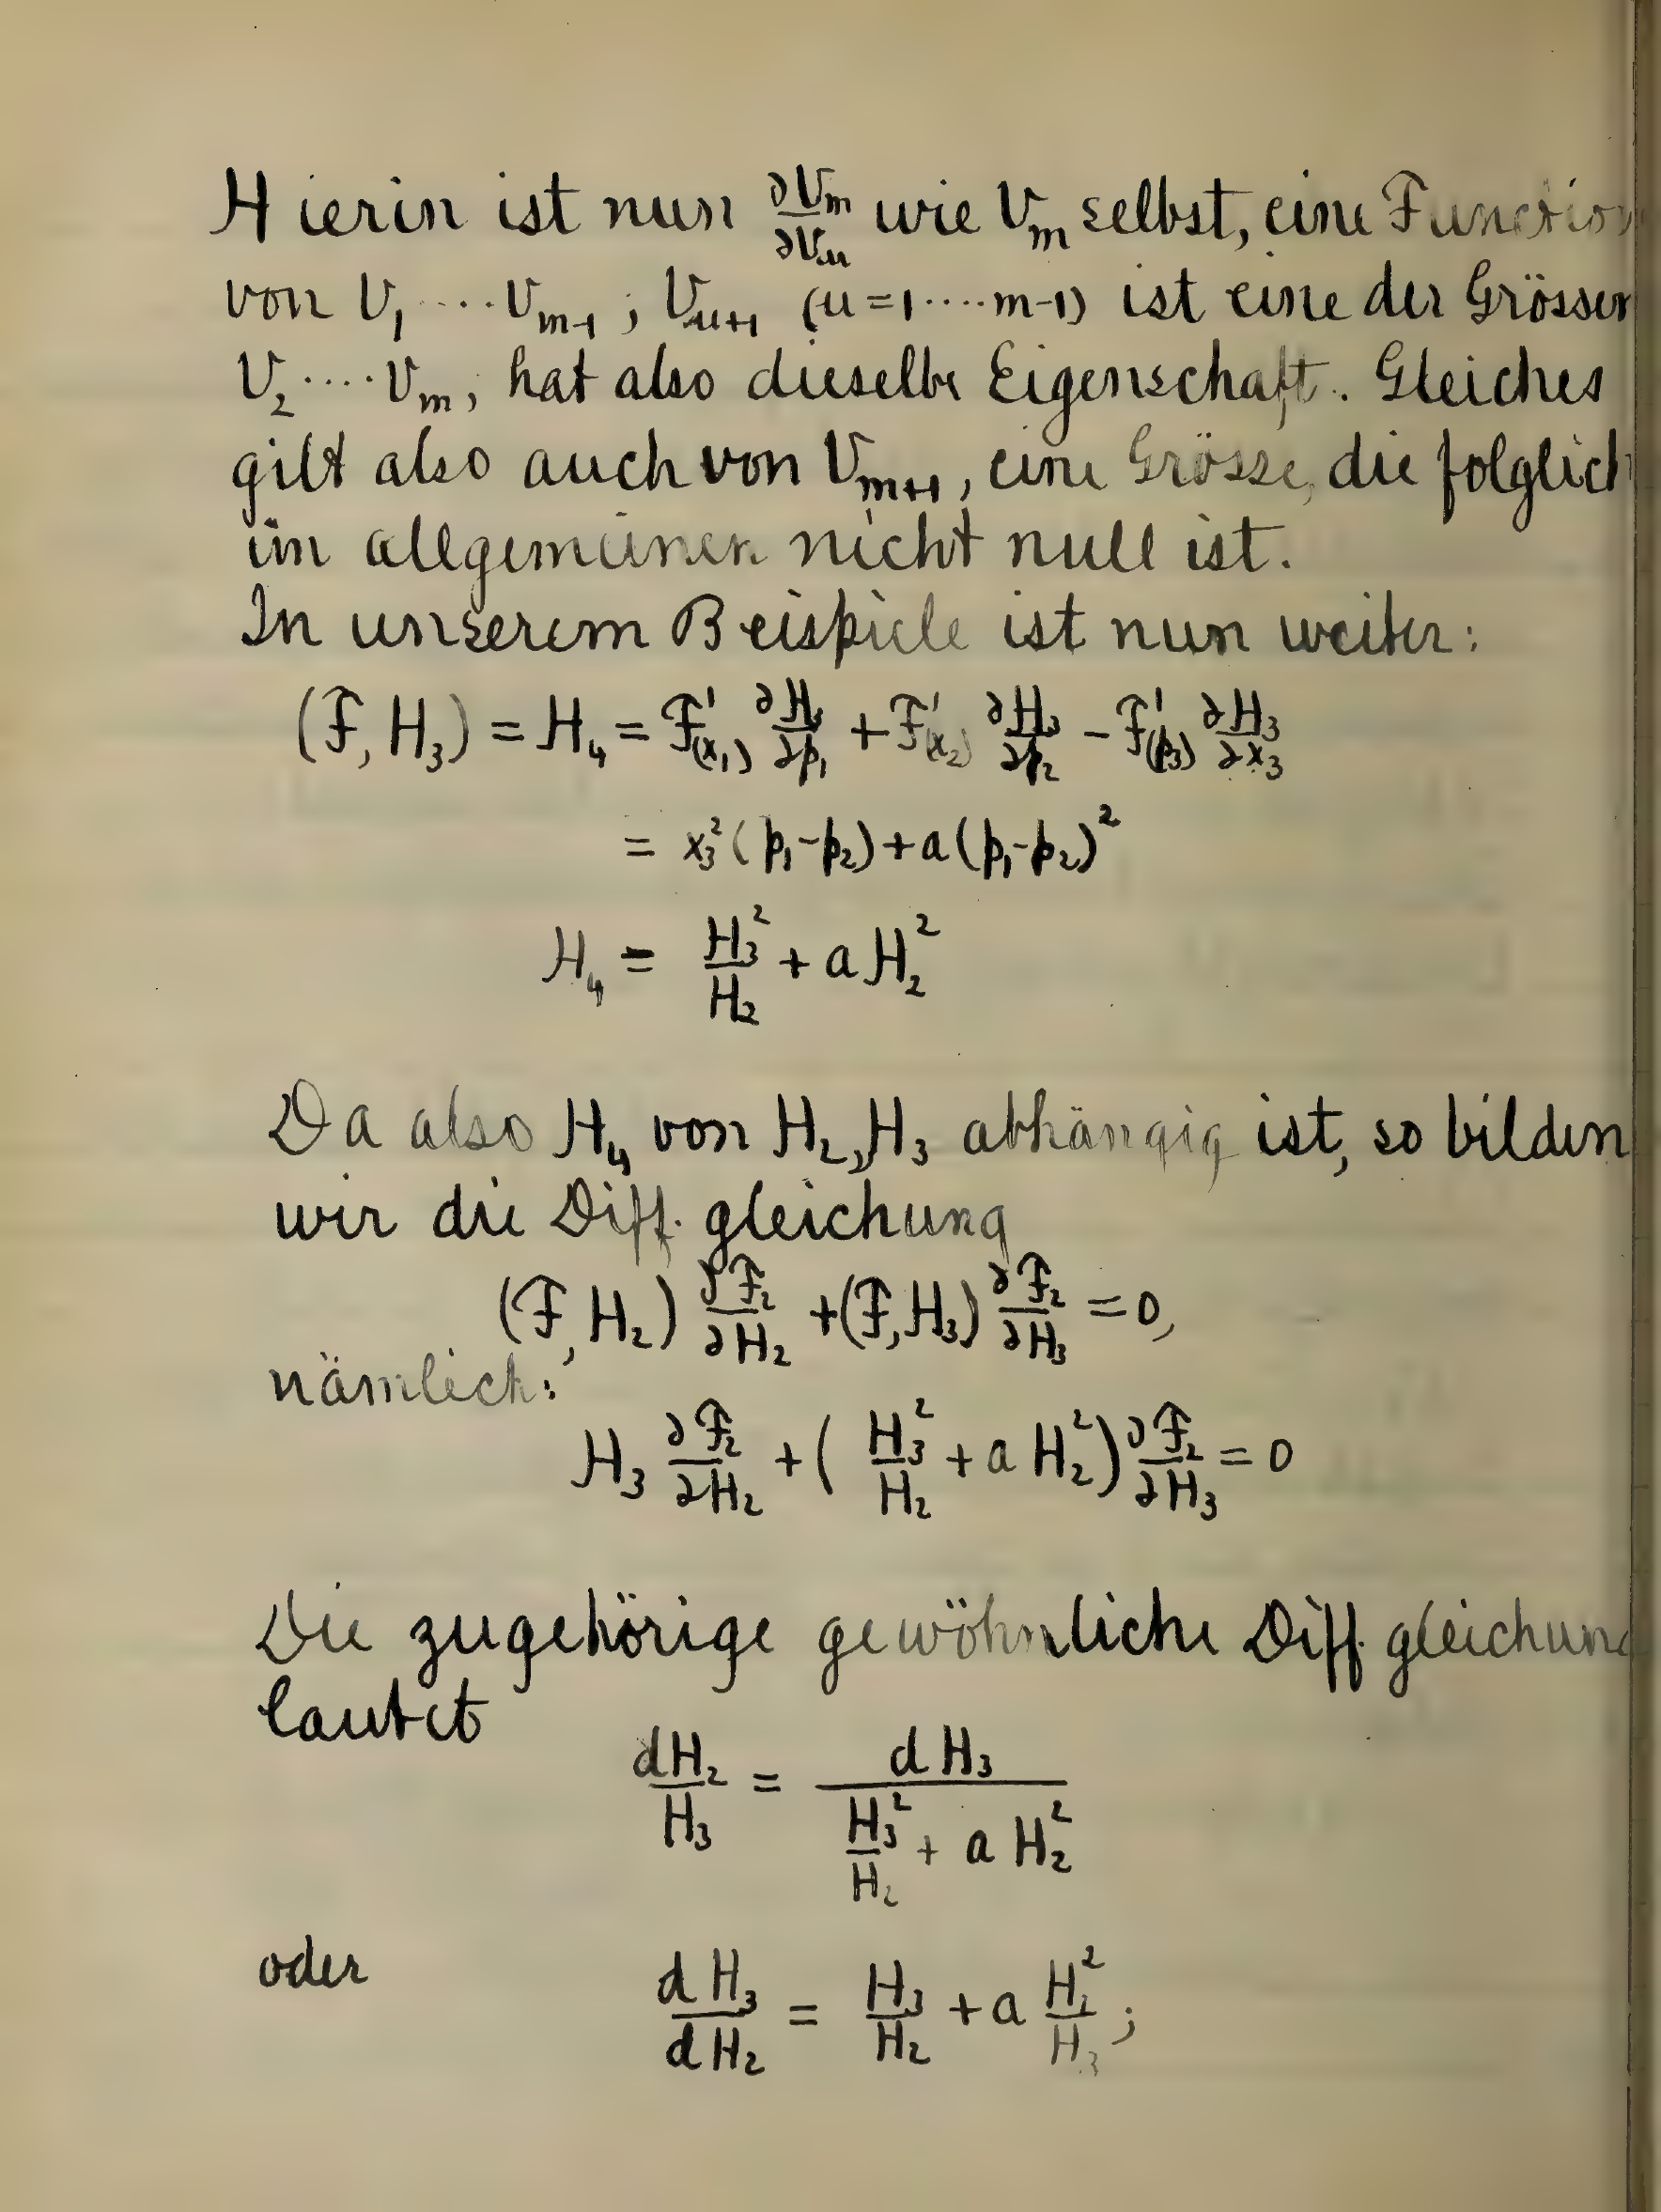 Hierin ist nun ∂V_m/∂V_μ wie V_m selbst, eine Function
von V_1 ···· V_{m-1} ; V_{μ+1} (μ = 1 ···· m-1) ist eine der Grössen
V_2 ···· V_m, hat also dieselbe Eigenschaft. Gleiches
gilt also auch von V_{m+1}, eine Grösse, die folglich
im allgemeinen nicht null ist.
In unserem Beispiele ist nun weiter:
(F, H_3) = H_4 = F'(x_1) ∂H_3/∂p_1 + F'(x_2) ∂H_3/∂p_2 - F'(p_3) ∂H_3/∂x_3
= x_3^2 (p_1-p_2) + a (p_1-p_2)^2
H_4 = H_3^2/H_2 + a H_2^2
Da also H_4 von H_2, H_3 abhängig ist, so bilden
wir die Diff. gleichung
(F, H_2) ∂F_2/∂H_2 + (F, H_3) ∂F_2/∂H_3 = 0,
nämlich:
H_3 ∂F_2/∂H_2 + ( H_3^2/H_2 + a H_2^2 ) ∂F_2/∂H_3 = 0
Die zugehörige gewöhnliche Diff. gleichung
lautet
dH_2/H_3 = dH_3/(H_3^2/H_2 + a H_2^2)
oder dH_3/dH_2 = H_3/H_2 + a H_2^2/H_3 ;